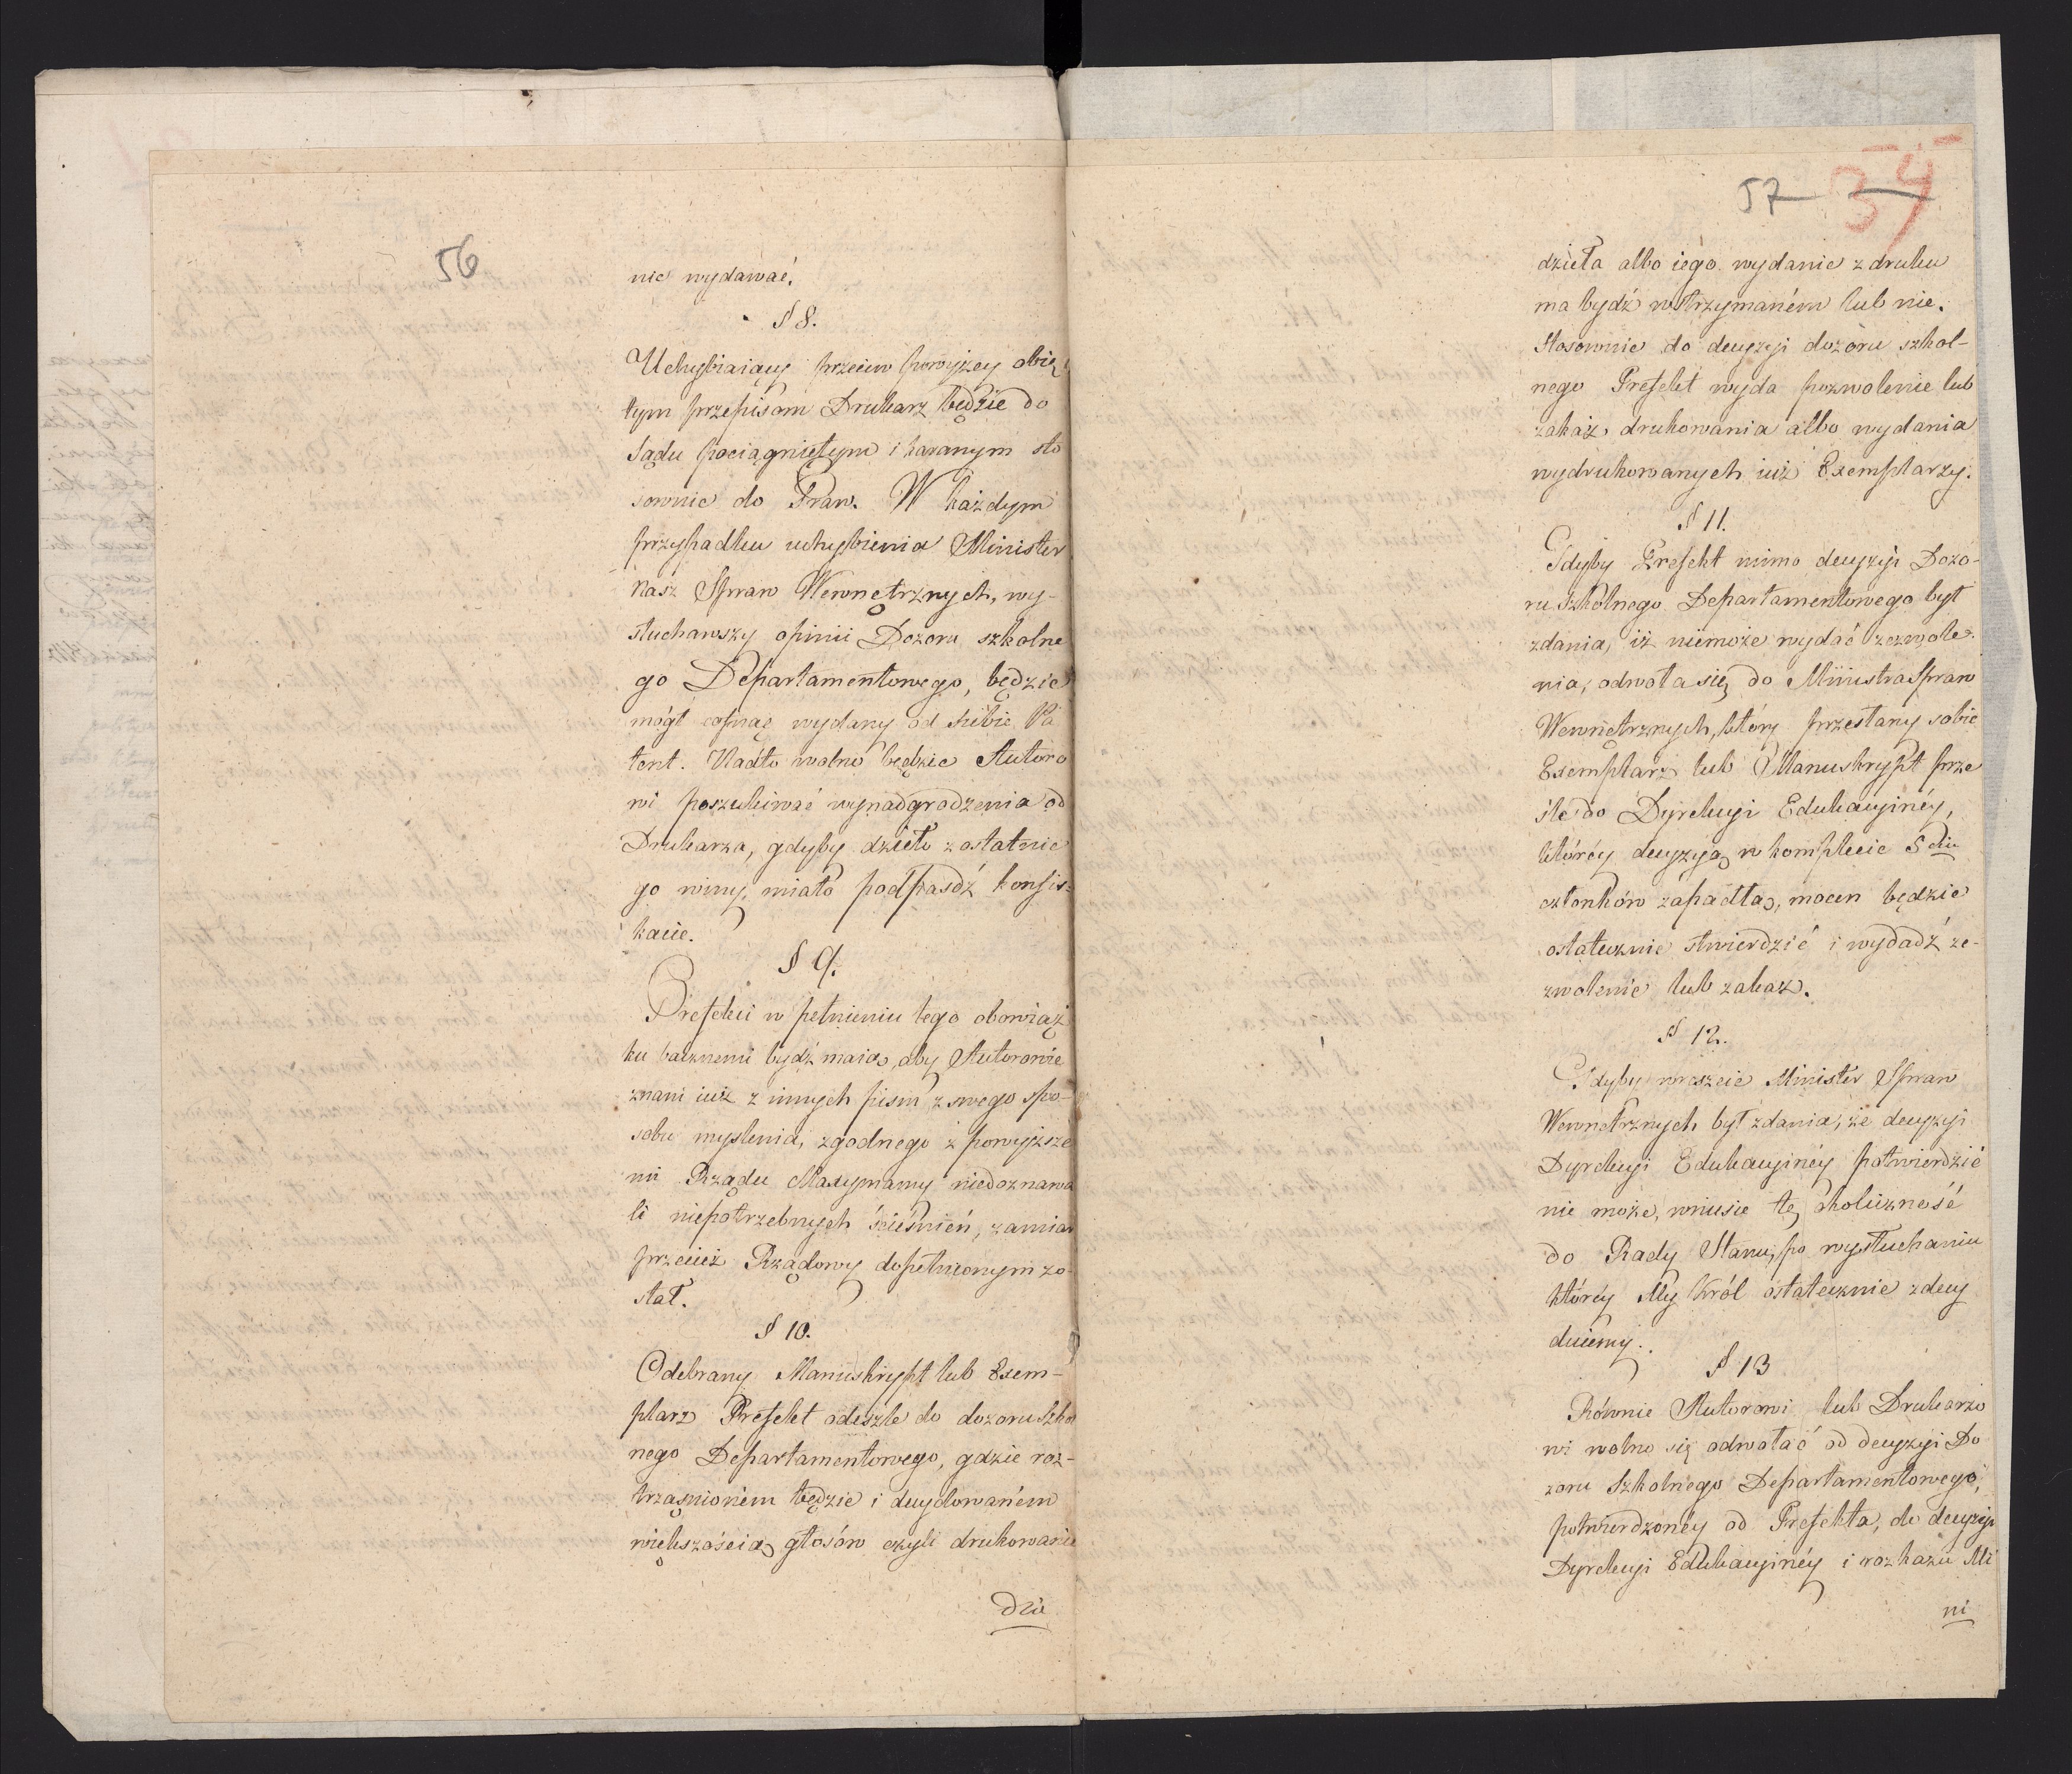 56
nie wydawać.
§ 8.
Uchybiaiący przeciw powyżey obię
tym przepisom Drukarz będzie do
Sądu pociągniętym i karanym sto
sownie do Praw. W każdym
przypadku uchybienia Minister
Nasz Spraw Wewnętrznych, wy-
słuchawszy opinii Dozoru szkolne
go Departamentowego, będzie
mógł cofnąć wydany od siebie Pa
tent. Nadto wolno będzie Autoro
wi poszukiwać wynadgrodzenia od
Drukarza, gdyby dzieło z ostatnie
go winy, miało podpaśdź konfis-
kacie.
§ 9.
Prefekci w pełnieniu tego obowiąz
ku bacznemi bydź maią, aby Autorowie
znani iuż z innych pism z swego spo-
sobu myslenia, zgodnego z powyższe
mi Rządu Maxymamy niedoznawa
li niepotrzebnych ścieśnień, zamiar
przecież Rządowy dopełnionym zo-
stał.
§ 10.
Odebrany Manuskrypt lub Exem-
plarz Prefekt odeszle do dozoru Szkol
nego Departamentowego, gdzie roz-
trząśnioném będzie i decydowaném
większością głosów czyli drukowanie
dzie
57 34
dzieła albo iégo wydanie z druku
ma bydź wstrzymaném lub nie.
Stosownie do decyzyi dozoru szkol-
nego Prefekt wyda pozwolenie lub
zakaz drukowania albo wydania
wydrukowanych iuż Exemplarzy.
§ 11.
Gdyby Prefekt mimo decyzyi Dozo-
ru Szkolnego Departamentowego był
zdania, iż niemoże wydać zezwole-
nia, odwoła się do Ministra Spraw
Wewnętrznych, który przesłany sobie
Exemplarz lub Manuskrypt prze
śle do Dyrekcyi Edukacyinéy,
któréy decyzyą w komplecie 5ciu
członków zapadłą, mocen będzie
ostatecznie stwierdzić i wydadź ze-
zwolenie lub zakaz.
§ 12.
Gdyby wreszcie Minister Spraw
Wewnetrznych był zdania, że decyzyi
Dyrekcyi Edukacyinéy potwierdzić
nie może, wniesie tę okoliczność
do Rady Stanu, po wysłuchaniu
któréy My Król ostatecznie zdecy
duiemy.
§ 13
Równie Autorowi lub Drukarzo
wi wolno się odwołać od decyzyi Do
zoru Szkolnego Departamentowego,
potwierdzonéy od Prefekta, do decyzyi
Dyrekcyi Edukacyinéy i rozkazu Mi
ni